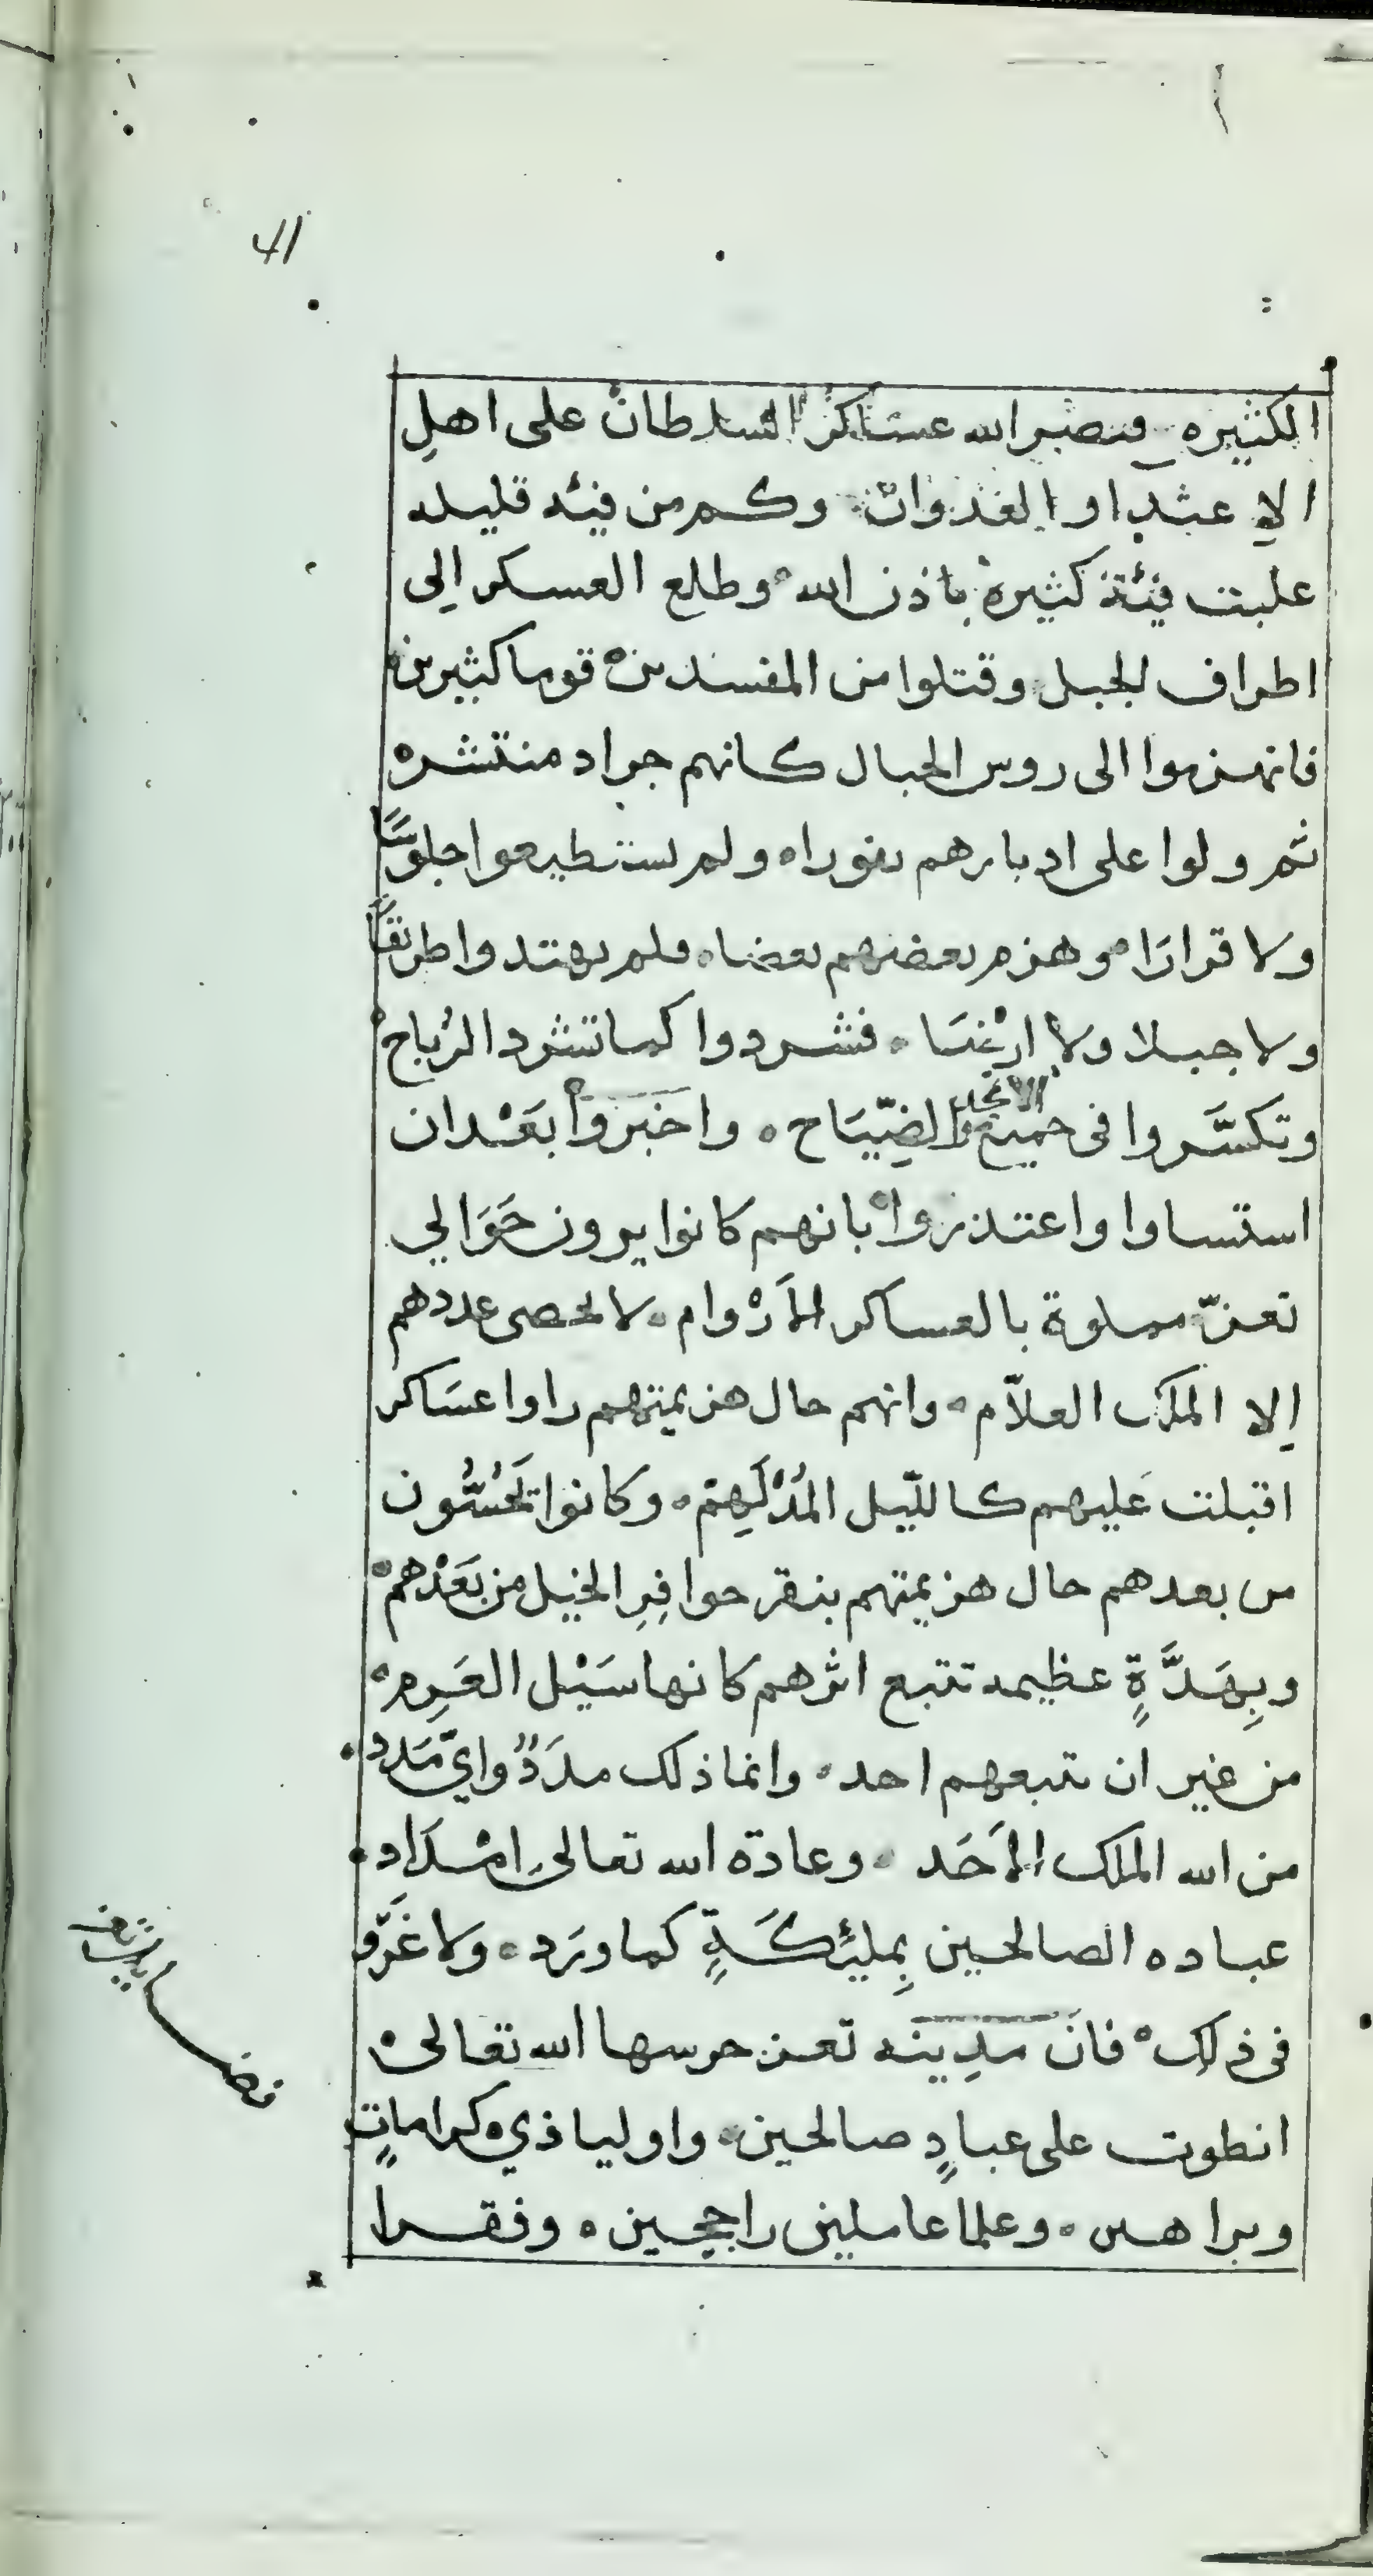 41
الكثيره فنصر الله عساكر السلطان على اهلِ
الاِعتدا والعدوان وكم من فيئه قليله
غلبت فيئة كثيرة باذن الله وطلع العسكر اِلى
اطراف الجبل وقتلوا من المفسدين قوما كثيرين
فانهزموا الى روس الجبال كانهم جراد منتشره
ثم ولوا على ادبارهم نفورا ولم يستطيعوا جلوسًا
ولا قرارَا وهزم بعضهم بعضا فلم يهتدوا طريقًا
ولا جبلا ولا ارْضَا فشردوا كما تشرد الرياح
وتكسَّروا فى جميع الضِّيَاح واخبَروا بعَدان
استساوا واعتذروا بانهم كانوا يرون حَوَالي
تعزّ مملوة بالعساكر الأرْوام لا يحصى عددهم
اِلا الملك العلاّم وانهم حال هزيمتهم راوا عسَاكر
اقبلت عَليهم كاللّيل المُدْلَهِمّ وكانوا يَحُسُّون
من بعدهم حال هزيمتهم بنقر حوافِرِ الخيل من بَعْدهم
وبِهَدَّةٍ عظيمه تتبع اثرهم كانها سَيْل العَرِم
من غير ان يتبعهم احد وانما ذلك مدَدٌ وايّ مَدد
من الله الملك الأَحَد وعادة الله تعالى اِمْدَاد
عباده الصالحين بِمليئكَةٍ كما ورَد ولا غَرْو
فى ذلك فان مدِينَه تعز حرسها الله تعالى
انطوت على عبادٍ صالحين واوليا ذي كراماتٍ
وبراهين وعلما عاملين راجحين وفقرا